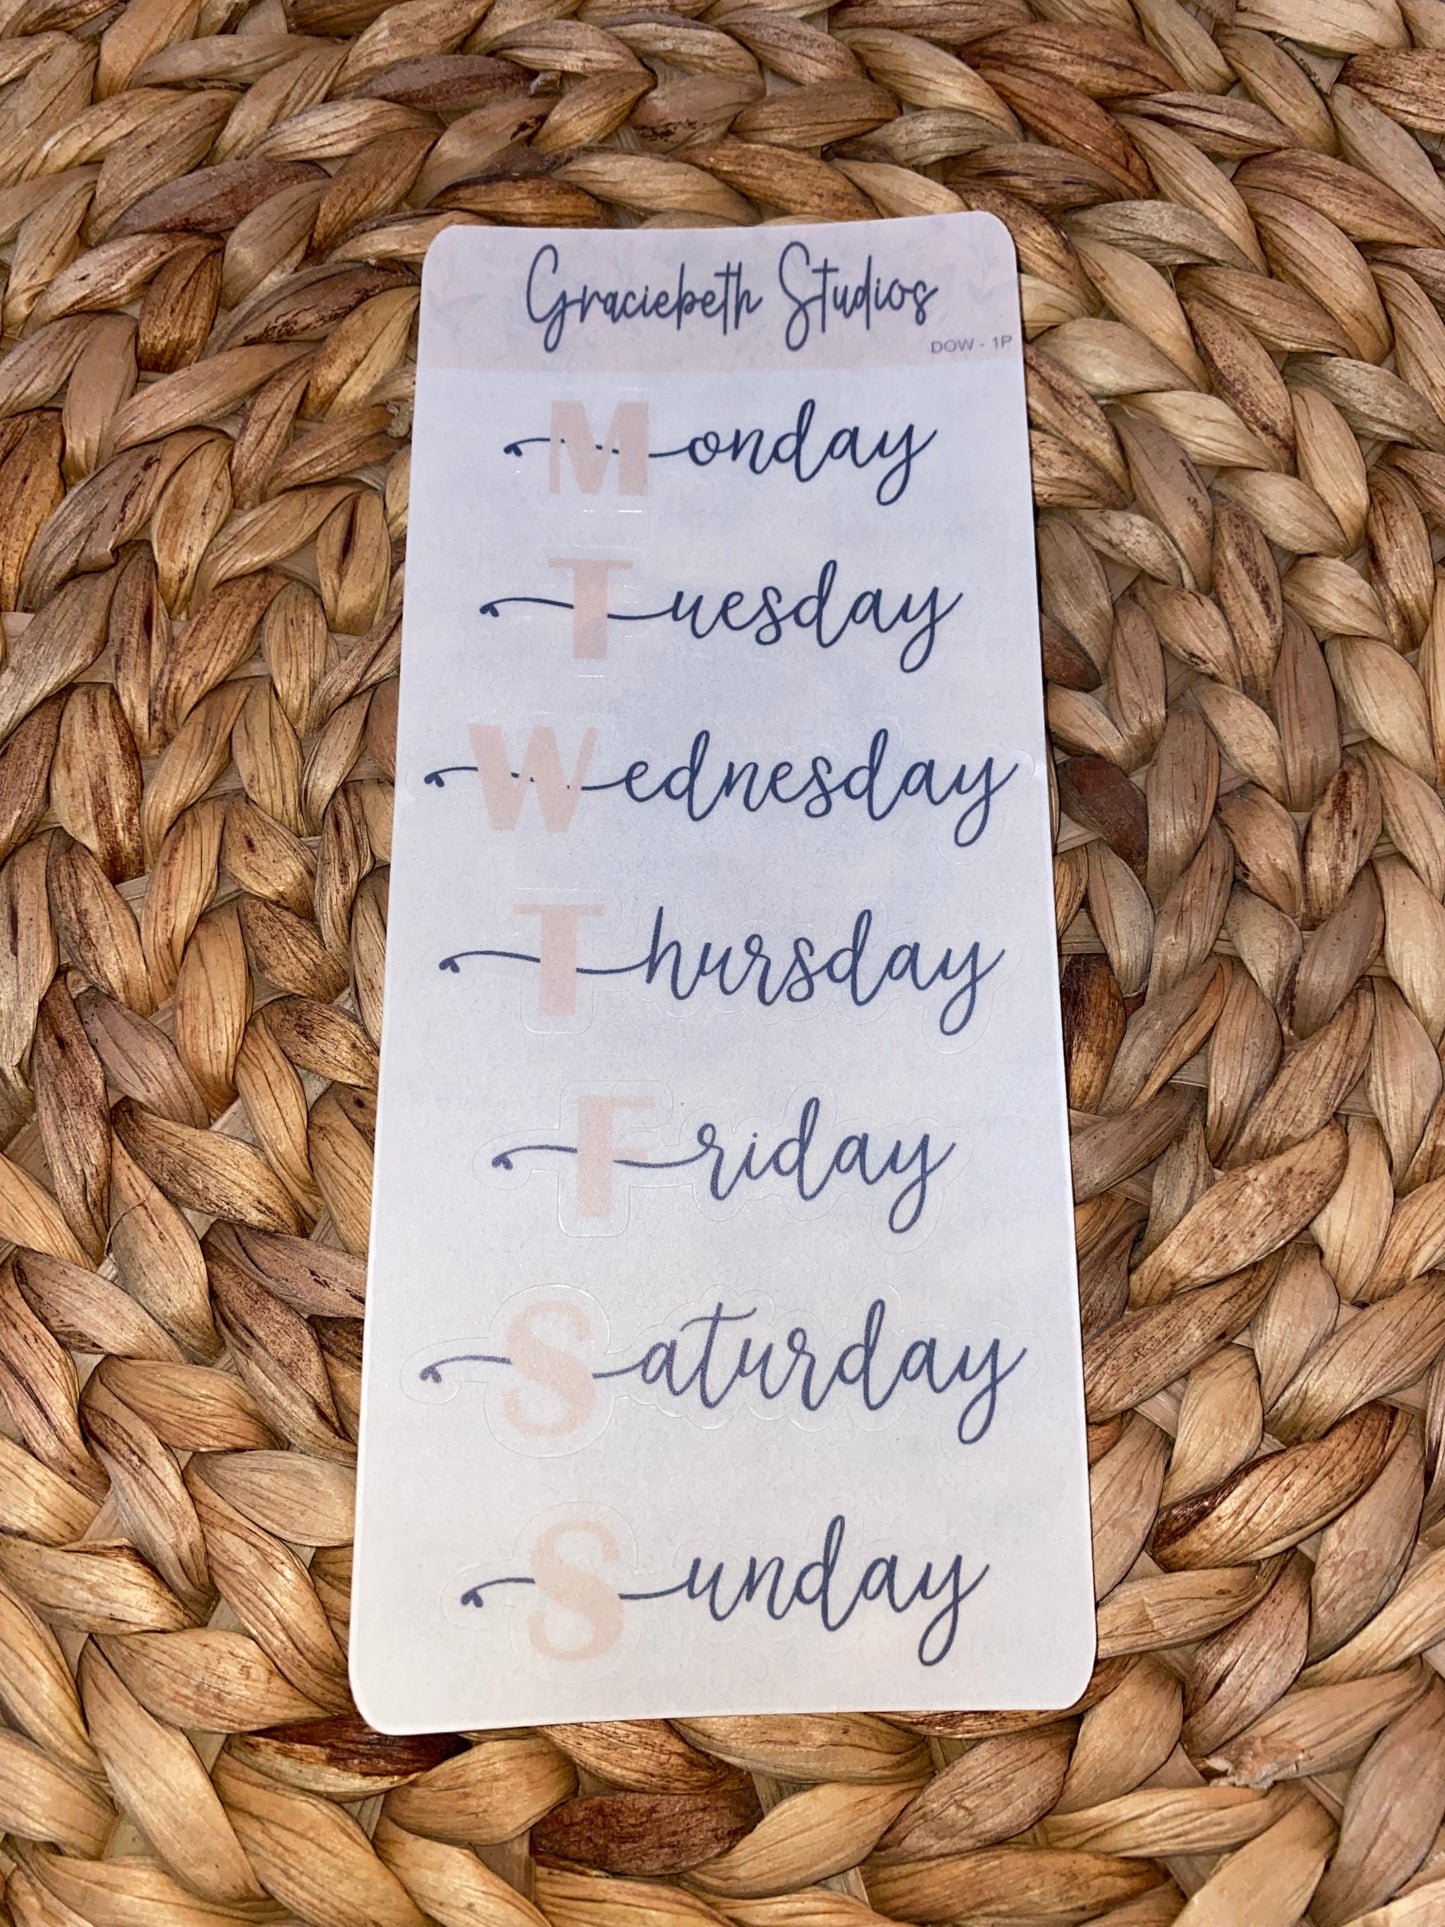 Graciebeth Studios
DOW - 1P
Monday
Tuesday
Wednesday
Thursday
Friday
Saturday
Sunday